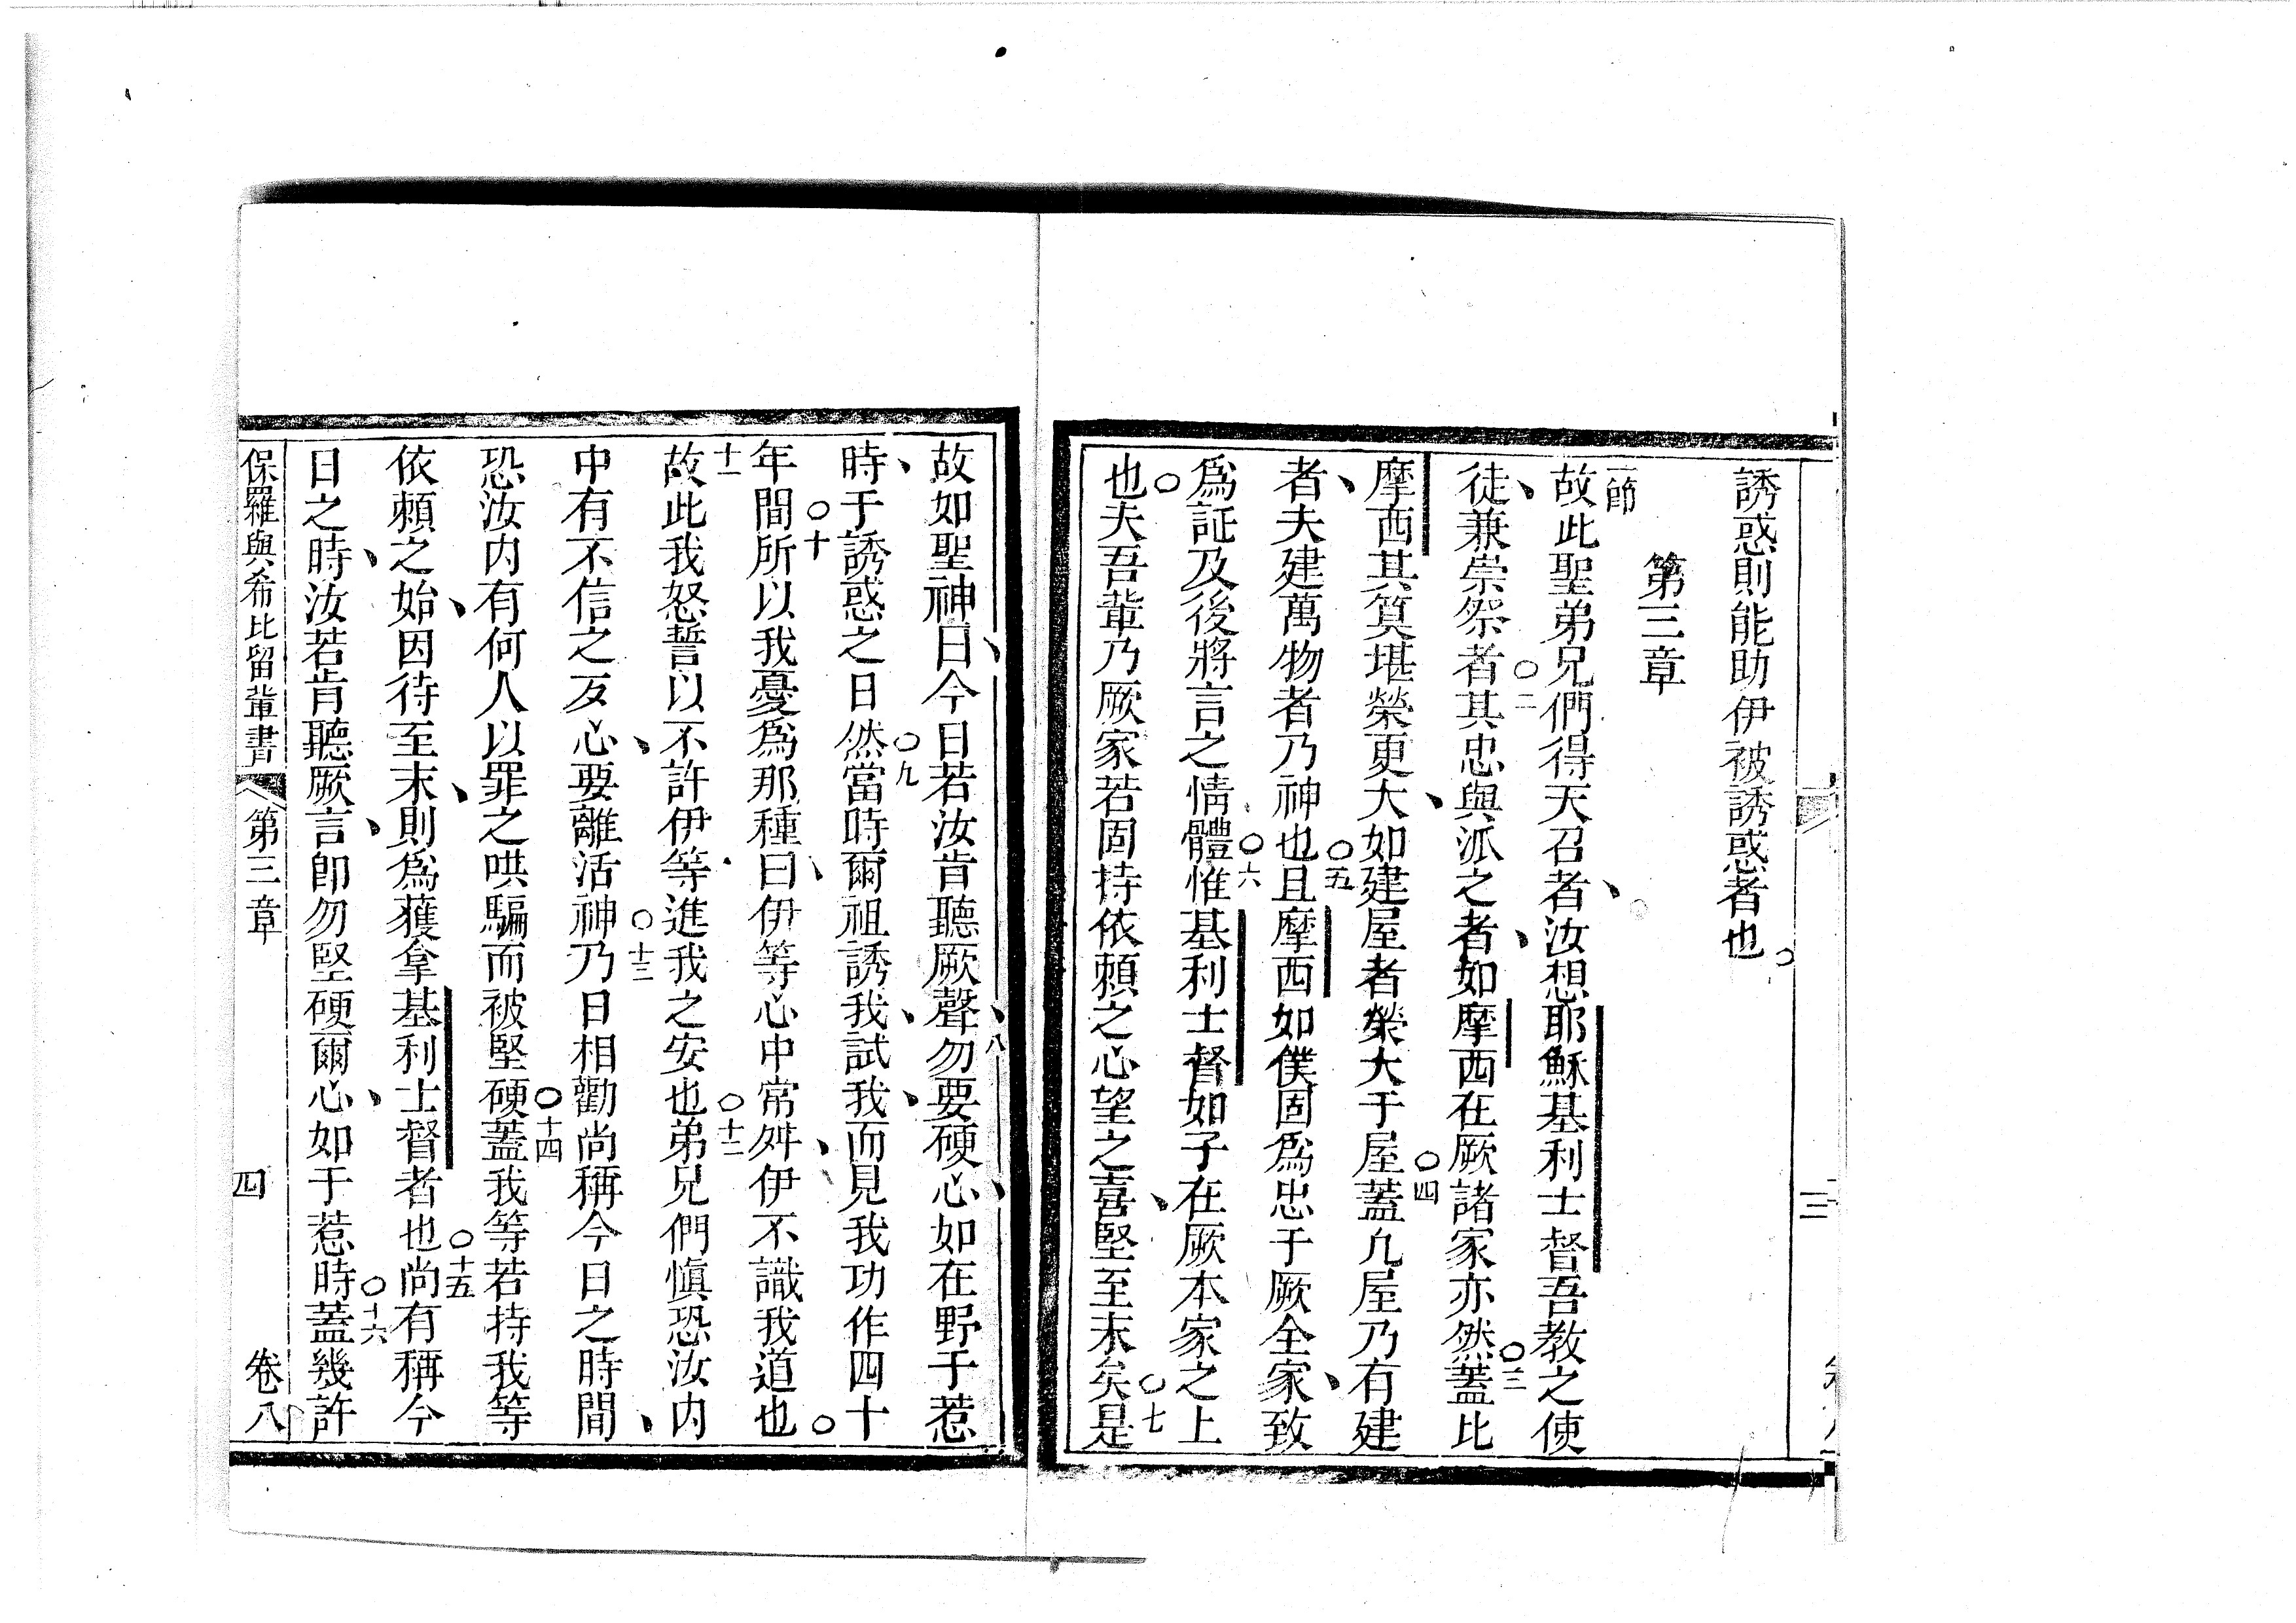 誘惑則能助伊被誘惑者也。
第三章
一節
故此聖弟兄們得天召者、汝想耶穌基利士督吾教之使
徒、兼崇祭者○二其忠與派之者、如摩西在厥諸家亦然○三蓋比
摩西其筧堪榮更大、如建屋者榮大于屋○四蓋凢屋乃有建
者、夫建萬物者乃神也○五且摩西如僕固為忠于厥全家、致
為証及後將言之情體○六惟基利士督如子在厥本家之上
也。夫吾輩乃厥家若固持依賴之心望之喜、堅至末矣○七是
故如聖神曰、今日若汝肯聽厥聲、八勿要硬心、如在野于惹
時、于誘惑之日○九然當時爾祖誘我、試我、而見我功作四十
年間○十所以我憂為那種曰、伊等心中常舛、伊不識我道也。
十一故此我怒誓以不許伊等進我之安也○十二弟兄們慎恐汝內
中有不信之歹心、要離活神○十三乃日相勸尚稱今日之時間、
恐汝內有何人以罪之哄騙而被堅硬○十四蓋我等若持我等
依賴之始、因待至末、則為獲拿基利士督者也○十五尚有稱今
日之時、汝若肯聽厥言、卽勿堅硬爾心、如于惹時○十六蓋幾許
保羅與希比留輩書 第三章 四 卷八